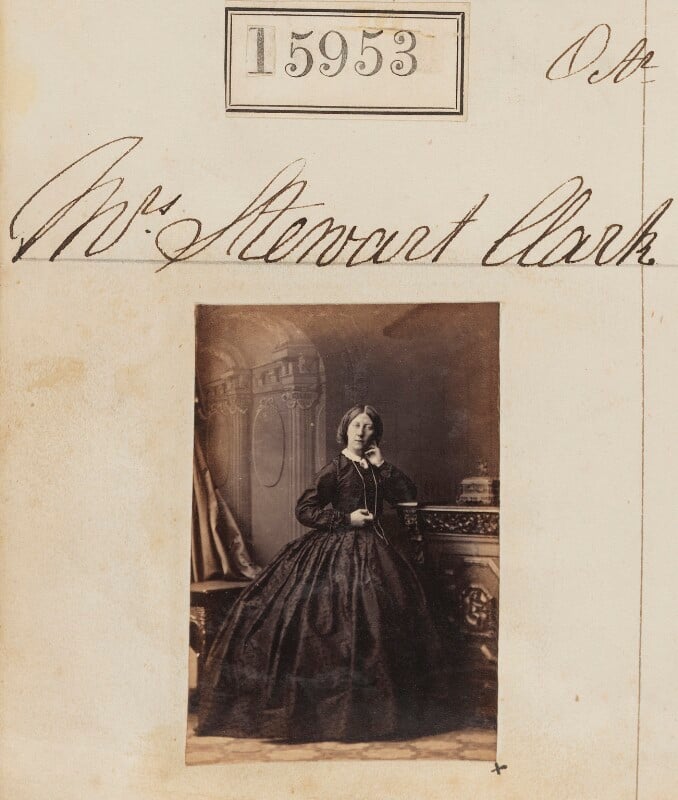 15953
Mrs Stewart Clark